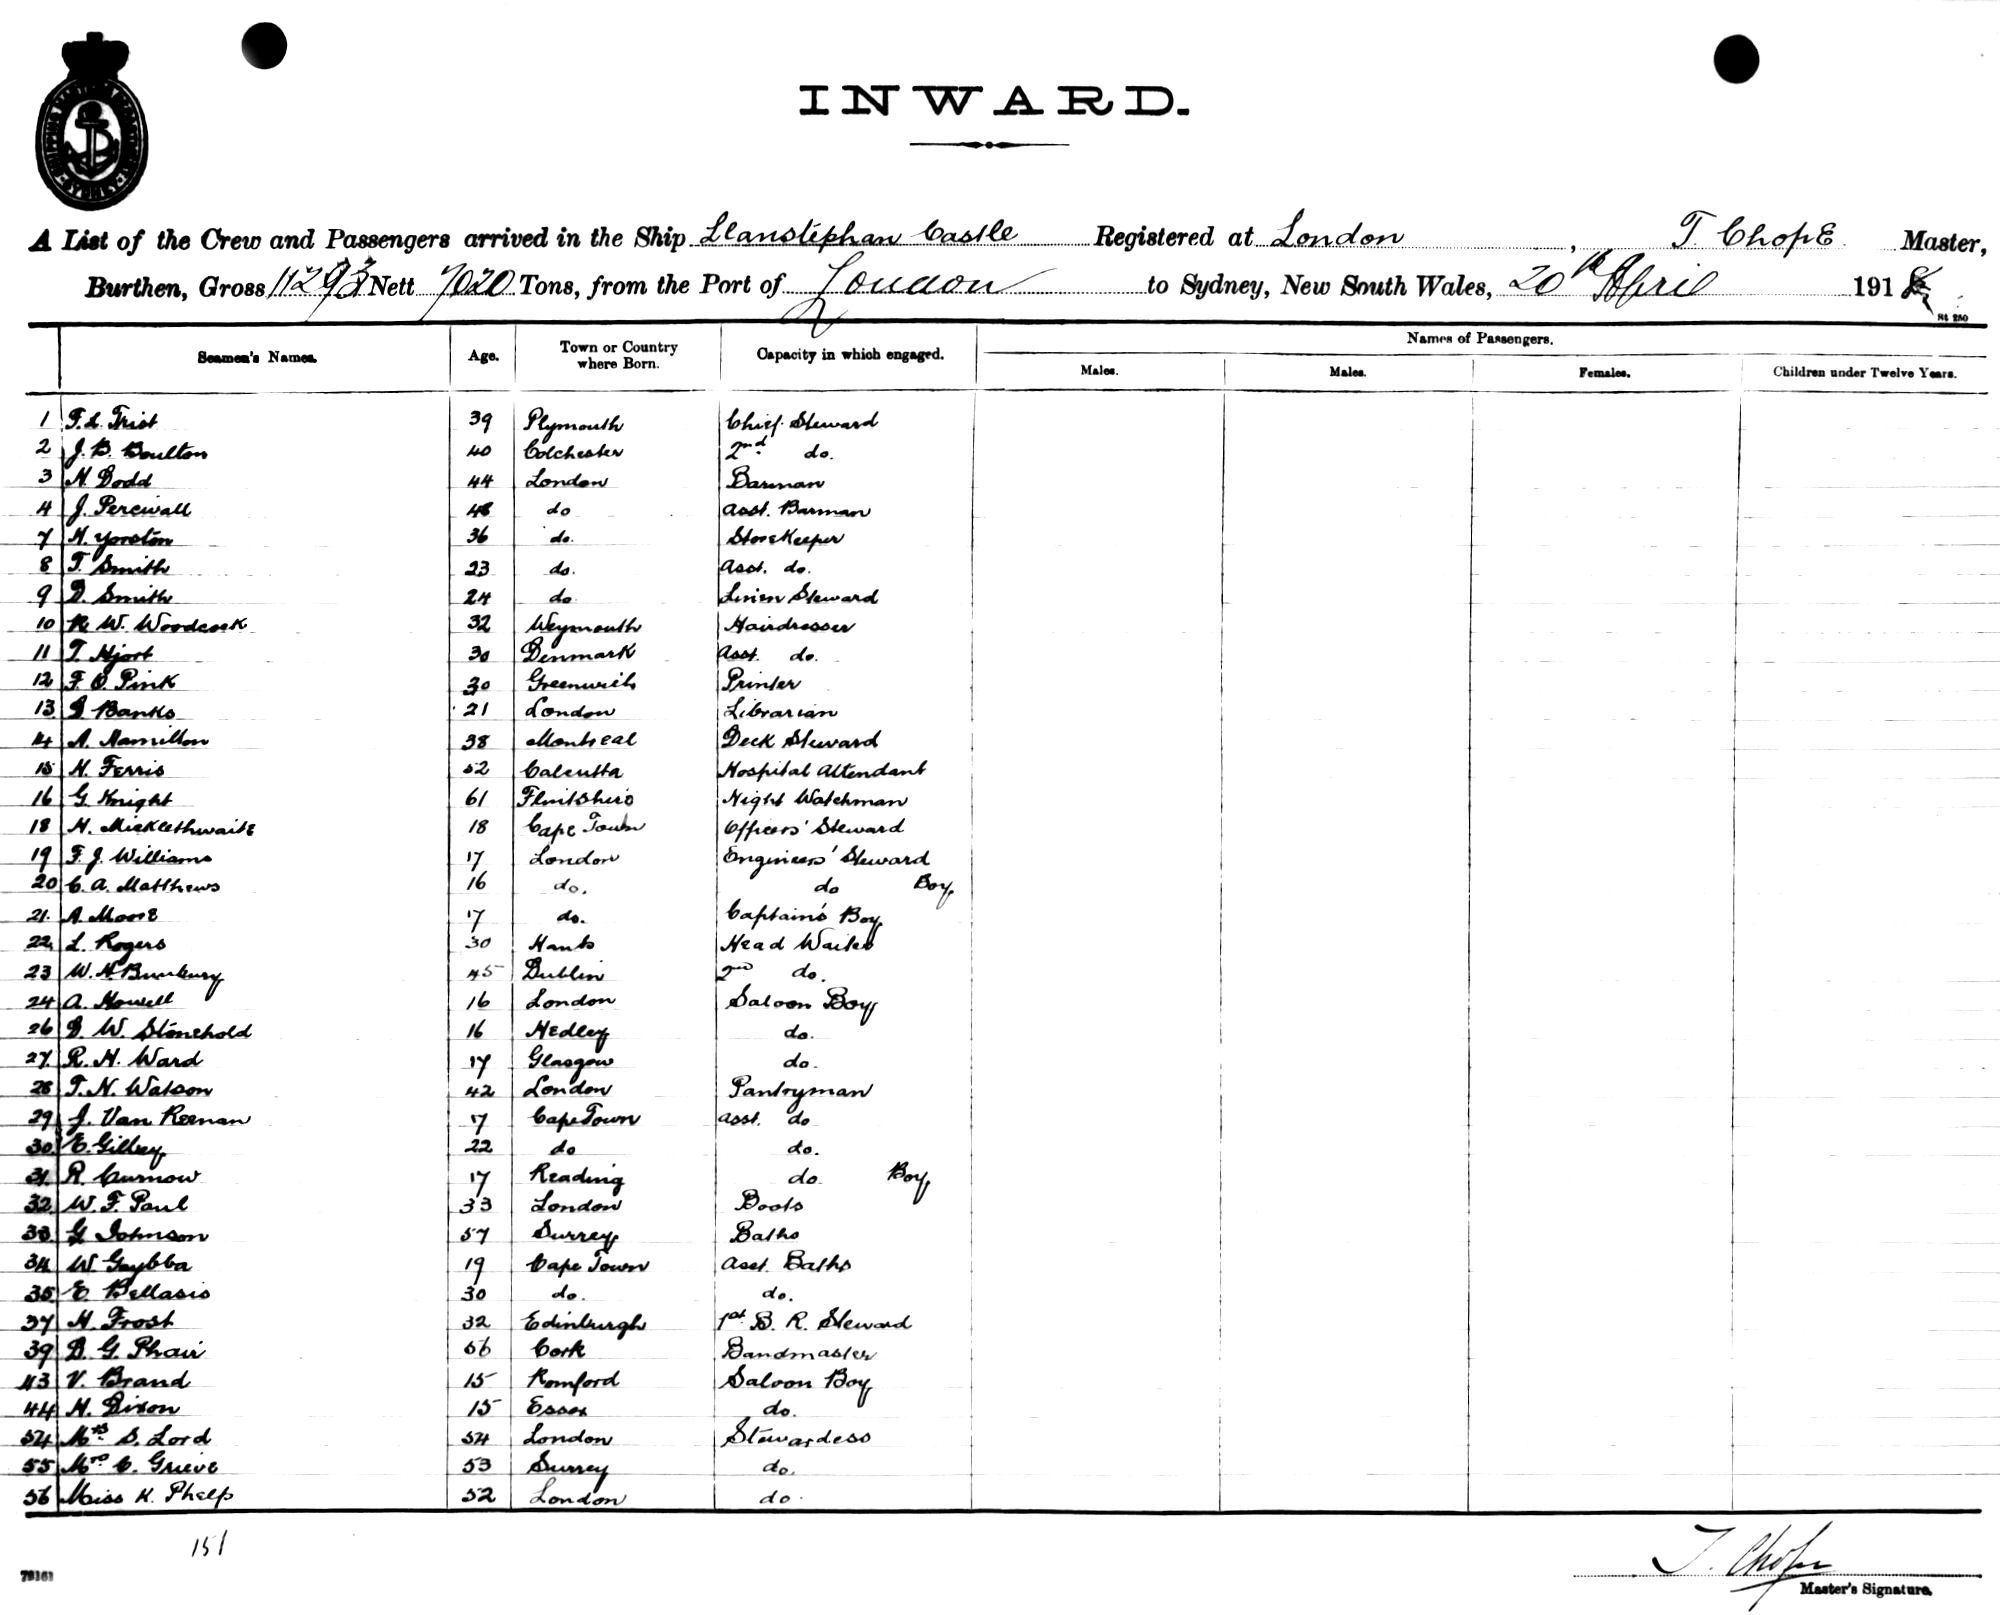 INWARD.
A List of the Crew and Passengers arrived in the Ship Llanstephan Castle Registered at London, T. Chope Master,
Burthen, Gross 11293 Nett 7020 Tons, from the Port of London to Sydney, New South Wales, 20th April 1918
St 250
Names of Passengers.
Seamen's Names. Age. Town or Country where Born. Capacity in which engaged. Males. Males. Females. Children under Twelve Years.
1 F.L. Trist 39 Plymouth Chief Steward
2 J. B. Boulton 40 Colchester 2nd do.
3 H. Dodd 44 London Barman
4 J. Percivall 48 do Asst. Barman
7 H. Yorston 36 do. StoreKeeper
8 T. Smith 23 do. Asst. do.
9 D. Smith 24 do Linen Steward
10 R. W. Woodcock 32 Weymouth Hairdresser
11 T. Hjort 30 Denmark Asst. do.
12 F. O. Pink 30 Greenwich Printer
13 Banks 21 London Librarian
14 A. Hamilton 38 Montreal Deck Steward
15 H. Ferris 52 Calcutta Hospital Attendant
16 G. Knight 61 Flintshire Night Watchman
18 H. Micklethwaite 18 Cape Town Officers' Steward
19 F. J. Williams 17 London Engineers' Steward
20 C. A. Matthews 16 do. do Boy
21. A. Moore 17 do. Captain's Boy
22 L. Rogers 30 Hants Head Waiter
23 W. H. Bunbury 45 Dublin 2nd do.
24 A. Howell 16 London Saloon Boy
26 W. Stonehold 16 Hedley do.
27. R. H. Ward 17 Glasgow do.
28 T. N. Watson 42 London Pantryman
29 J. Van Reenan 17 Cape Town Asst. do
30. E. Gilbey 22 do do.
31. R. Curnow 17 Reading do. Boy
32. W. F. Paul 33 London Boots
33. G. Johnson 57 Surrey Baths
34. W. Guybba 19 Cape Town Asst. Baths
35. E. Bellasis 30 do. do.
37 H. Frost 32 Edinburgh 1st B. R. Steward
39 D. G. Phair 56 Cork Bandmaster
43 V. Brand 15 Romford Saloon Boy
44 H. Dixon 15 Essex do.
54 Mrs S. Lord 54 London Stewardess
55 Mrs C. Grieve 53 Surrey do.
56 Miss K. Phelp 52 London do.
151
T. Chope
Master's Signature.